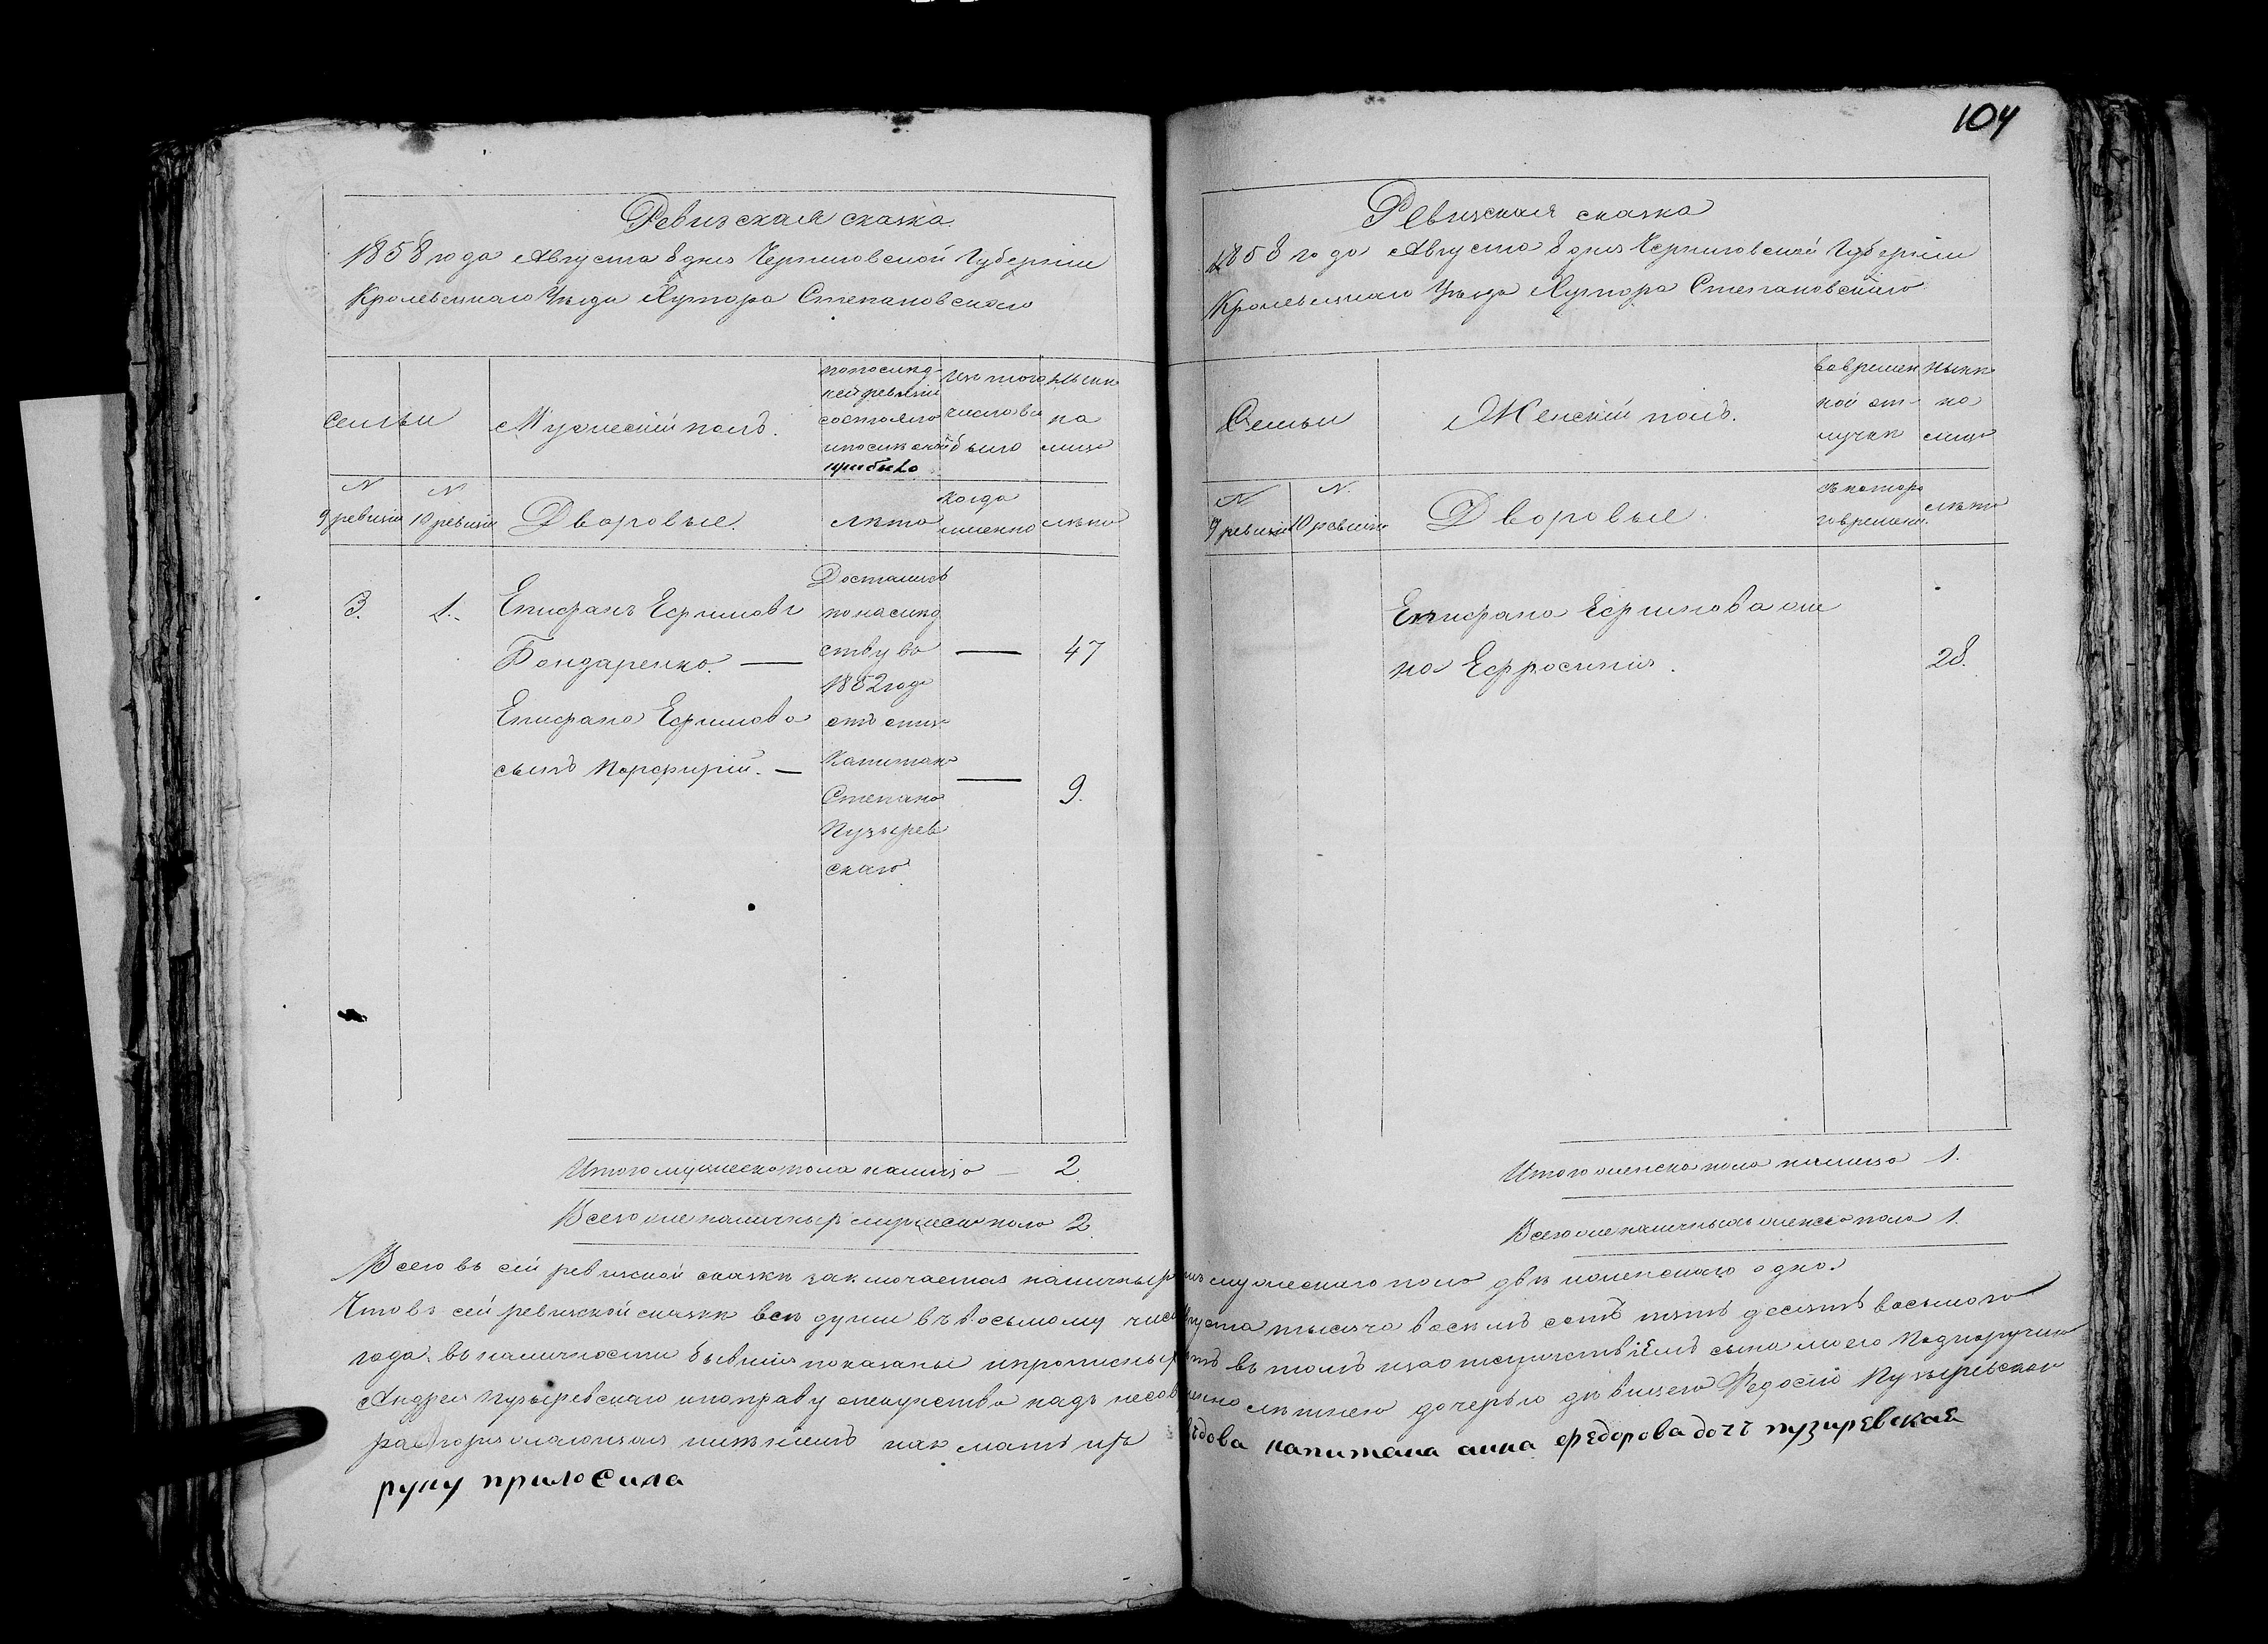 104
Ревизская сказка.
1858 года Августа 8 дня Черниговской Губернии
Кролевецкаго Уезда Хутора Степановскаго
семьи
Мужеский полъ.
по последней ревизии состояло и после оной прибыло
изъ того числа выбыло
ныне на лицо
N 9 ревизии
N 10 ревизии
Дворовые.
лета
когда именно
лета
3.
1.
Епифанъ Ефимовъ
Бондаренко. —
Епифана Ефимова
сынъ Порфирий. —
Достались
по наслед
ству въ
1852 годе
отъ
Капитана
Степана
Пузырев
скаго
— 47
— 9.
Итого мужеска пола налицо — 2.
Всего же наличныхъ мужеска пола 2.
Ревизская сказка
1858 года Августа 8 дня Черниговской Губернии
Кролевецкаго Уезда Хутора Степановскаго
Семьи
Женский полъ.
во временной отлучке
ныне на лицо
N 9 ревизии
N. 10 ревизии
Дворовые.
съ котораго времени.
лета
Епифана Ефимова же
на Ефросиния.
28.
Итого женска пола налицо 1.
Всего же наличныхъ женска пола 1.
Всего въ сей ревизской сказке заключается наличныхъ мужескаго пола две и женскаго одна.
Что въ сей ревизской сказке все души въ восьмому числу Августа тысяча восемь сотъ пять десять восьмого
года въ наличности бывшия показаны и прописныхъ нетъ въ томъ за отсутствиемъ сына моего Подпоручика
Андрея Пузыревскаго и по праву опекунства надъ несовершеннолетнею дочерью девицею Федосию Пузыревскою
распоряжающаяся имениемъ какъ мать ихъ вдова капитана анна федорова дочъ пузиревская
руку приложила